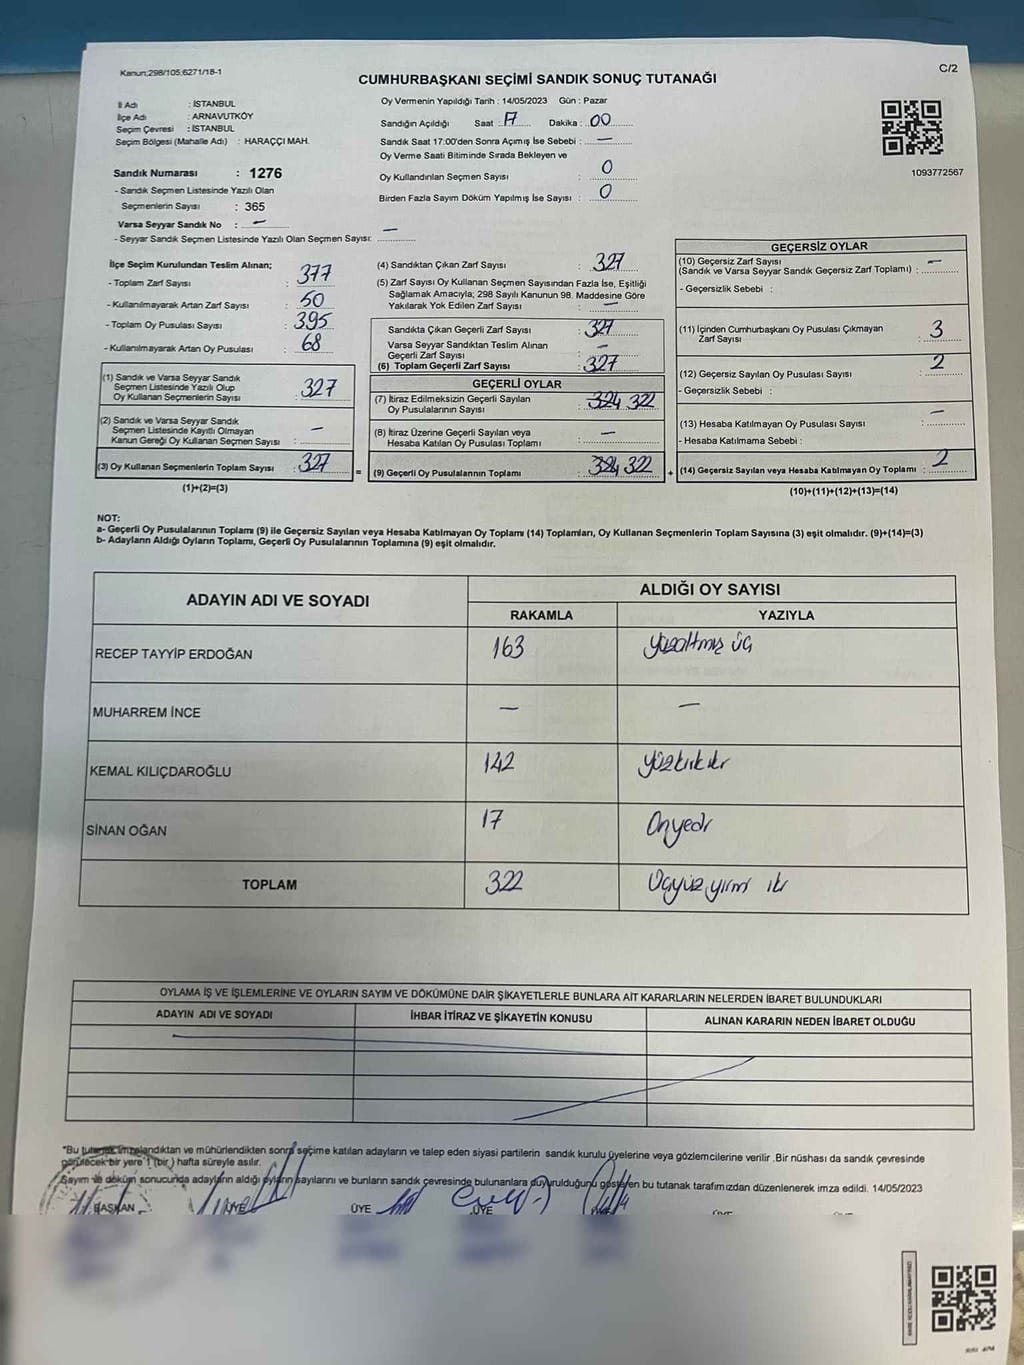 Kanun:298/105;6271/18-1
C/2
CUMHURBAŞKANI SEÇİMİ SANDIK SONUÇ TUTANAĞI
İl Adı : İSTANBUL
İlçe Adı : ARNAVUTKÖY
Seçim Çevresi : İSTANBUL
Seçim Bölgesi (Mahalle Adı) : HARAÇÇI MAH.
Sandık Numarası : 1276
- Sandık Seçmen Listesinde Yazılı Olan
Seçmenlerin Sayısı : 365
Varsa Seyyar Sandık No : —
- Seyyar Sandık Seçmen Listesinde Yazılı Olan Seçmen Sayısı: —
Oy Vermenin Yapıldığı Tarih : 14/05/2023 Gün : Pazar
Sandığın Açıldığı Saat : 17 Dakika : 00
Sandık Saat 17:00'den Sonra Açımış İse Sebebi : —
Oy Verme Saati Bitiminde Sırada Bekleyen ve
Oy Kullandırılan Seçmen Sayısı : 0
Birden Fazla Sayım Döküm Yapılmış İse Sayısı : 0
1093772567
İlçe Seçim Kurulundan Teslim Alınan;
- Toplam Zarf Sayısı : 377
- Kullanılmayarak Artan Zarf Sayısı : 50
- Toplam Oy Pusulası Sayısı : 395
- Kullanılmayarak Artan Oy Pusulası : 68
(1) Sandık ve Varsa Seyyar Sandık
Seçmen Listesinde Yazılı Olup
Oy Kullanan Seçmenlerin Sayısı : 327
(2) Sandık ve Varsa Seyyar Sandık
Seçmen Listesinde Kayıtlı Olmayan
Kanun Gereği Oy Kullanan Seçmen Sayısı : —
(3) Oy Kullanan Seçmenlerin Toplam Sayısı : 327
(1)+(2)=(3)
(4) Sandıktan Çıkan Zarf Sayısı : 327
(5) Zarf Sayısı Oy Kullanan Seçmen Sayısından Fazla İse, Eşitliği
Sağlamak Amacıyla; 298 Sayılı Kanunun 98. Maddesine Göre
Yakılarak Yok Edilen Zarf Sayısı : —
Sandıkta Çıkan Geçerli Zarf Sayısı : 327
Varsa Seyyar Sandıktan Teslim Alınan
Geçerli Zarf Sayısı : —
(6) Toplam Geçerli Zarf Sayısı : 327
=
GEÇERLİ OYLAR
(7) İtiraz Edilmeksizin Geçerli Sayılan
Oy Pusulalarının Sayısı : 324 322
(8) İtiraz Üzerine Geçerli Sayılan veya
Hesaba Katılan Oy Pusulası Toplamı : —
(9) Geçerli Oy Pusulalarının Toplamı : 324 322
+
GEÇERSİZ OYLAR
(10) Geçersiz Zarf Sayısı
(Sandık ve Varsa Seyyar Sandık Geçersiz Zarf Toplamı) : —
- Geçersizlik Sebebi :
(11) İçinden Cumhurbaşkanı Oy Pusulası Çıkmayan
Zarf Sayısı : 3
(12) Geçersiz Sayılan Oy Pusulası Sayısı : 2
- Geçersizlik Sebebi :
(13) Hesaba Katılmayan Oy Pusulası Sayısı : —
- Hesaba Katılmama Sebebi :
(14) Geçersiz Sayılan veya Hesaba Katılmayan Oy Toplamı : 2
(10)+(11)+(12)+(13)=(14)
NOT:
a- Geçerli Oy Pusulalarının Toplamı (9) ile Geçersiz Sayılan veya Hesaba Katılmayan Oy Toplamı (14) Toplamları, Oy Kullanan Seçmenlerin Toplam Sayısına (3) eşit olmalıdır. (9)+(14)=(3)
b- Adayların Aldığı Oyların Toplamı, Geçerli Oy Pusulalarının Toplamına (9) eşit olmalıdır.
ADAYIN ADI VE SOYADI
ALDIĞI OY SAYISI
RAKAMLA YAZIYLA
RECEP TAYYİP ERDOĞAN 163 yüzaltmış üç
MUHARREM İNCE — —
KEMAL KILIÇDAROĞLU 142 yüzkırkiki
SİNAN OĞAN 17 Onyedi
TOPLAM 322 Üçyüz yirmi iki
OYLAMA İŞ VE İŞLEMLERİNE VE OYLARIN SAYIM VE DÖKÜMÜNE DAİR ŞİKAYETLERLE BUNLARA AİT KARARLARIN NELERDEN İBARET BULUNDUKLARI
ADAYIN ADI VE SOYADI İHBAR İTİRAZ VE ŞİKAYETİN KONUSU ALINAN KARARIN NEDEN İBARET OLDUĞU
*Bu tutanak imzalandıktan ve mühürlendikten sonra seçime katılan adayların ve talep eden siyasi partilerin sandık kurulu üyelerine veya gözlemcilerine verilir .Bir nüshası da sandık çevresinde
görülecek bir yere 1 (bir ) hafta süreyle asılır.
Sayım ve döküm sonucunda adayların aldığı oyların sayılarını ve bunların sandık çevresinde bulunanlara duyurulduğunu gösteren bu tutanak tarafımızdan düzenlenerek imza edildi. 14/05/2023
BAŞKAN ÜYE ÜYE ÜYE